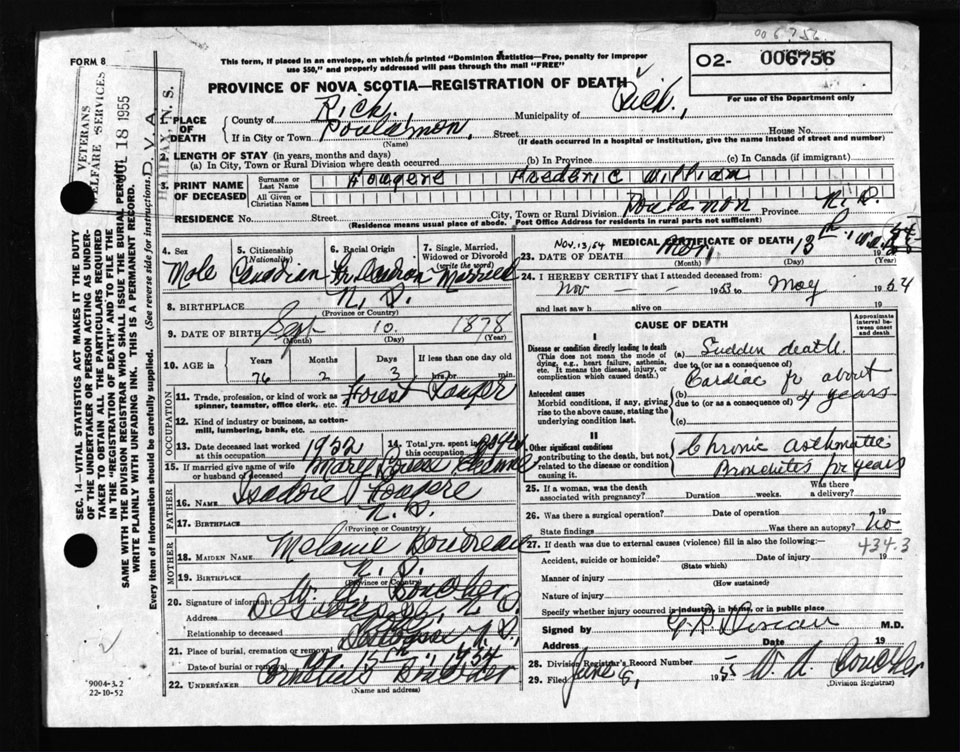 006756
FORM 8
This form, if placed in an envelope, on which is printed "Dominion Statistics—Free, penalty for improper
use $50," and properly addressed will pass through the mail "FREE"
O2- 006756
For use of the Department only
PROVINCE OF NOVA SCOTIA—REGISTRATION OF DEATH
VETERANS
WELFARE SERVICES
18 1955
D.V.A.
HALIFAX, N. S.
1. PLACE OF DEATH
County of Rich. Municipality of Rich.,
If in City or Town Poulamon, Street House No.
(Name) (If death occurred in a hospital or institution, give the name instead of street and number)
2. LENGTH OF STAY (in years, months and days)
(a) In City, Town or Rural Division where death occurred (b) In Province (c) In Canada (if immigrant)
3. PRINT NAME OF DECEASED
Surname or Last Name
All Given or Christian Names
Fougere Frederic William
RESIDENCE No. Street City, Town or Rural Division Poulamon Province N.S.
(Residence means usual place of abode. Post Office Address for residents in rural parts not sufficient)
SEC. 14—VITAL STATISTICS ACT MAKES IT THE DUTY
OF THE UNDERTAKER OR PERSON ACTING AS UNDER-
TAKER TO OBTAIN ALL THE PARTICULARS REQUIRED
IN THE "REGISTRATION OF DEATH" AND TO FILE THE
SAME WITH THE DIVISION REGISTRAR WHO SHALL ISSUE THE BURIAL PERMIT
WRITE PLAINLY WITH UNFADING INK. THIS IS A PERMANENT RECORD.
Every item of information should be carefully supplied. (See reverse side for instructions.)
4. Sex 5. Citizenship (Nationality) 6. Racial Origin 7. Single, Married, Widowed or Divorced (write the word)
Male Canadian Fr. Married
8. BIRTHPLACE N. S.
(Province or Country)
9. DATE OF BIRTH Sept 10. 1878
(Month) (Day) (Year)
10. AGE in Years Months Days If less than one day old
76 2 3 hrs or min.
OCCUPATION
11. Trade, profession, or kind of work as
spinner, teamster, office clerk, etc. Forest Ranger
12. Kind of industry or business, as cotton-
mill, lumbering, bank, etc.
13. Date deceased last worked
at this occupation 1932
14. Total yrs. spent in
this occupation
15. If married give name of wife
or husband of deceased Mary Louise
FATHER
16. NAME Isadore Fougere
17. BIRTHPLACE N. S.
(Province or Country)
MOTHER
18. MAIDEN NAME Melanie Boudreau
19. BIRTHPLACE N. S.
(Province or Country)
20. Signature of informant W. A. Boucher
Address N. S.
Relationship to deceased
21. Place of burial, cremation or removal N. S.
Date of burial or removal Nov. 15th, 1954
22. UNDERTAKER Cornelius Boucher
(Name and address)
9004-3.2
22-10-52
MEDICAL CERTIFICATE OF DEATH
Nov. 13, 54
23. DATE OF DEATH Nov. 13th, 1954
(Month) (Day) (Year)
24. I HEREBY CERTIFY that I attended deceased from:
Nov — 1953 to May 1954
and last saw h alive on 19
CAUSE OF DEATH
Approximate
interval be-
tween onset
and death
I
Disease or condition directly leading to death
(This does not mean the mode of
dying, e.g., heart failure, asthenia,
etc. It means the disease, injury, or
complication which caused death.)
(a) Sudden death.
due to (or as a consequence of)
Cardiac for about
4 years
Antecedent causes
Morbid conditions, if any, giving
rise to the above cause, stating the
underlying condition last.
(b)
due to (or as a consequence of)
(c)
II
Other significant conditions
contributing to the death, but not
related to the disease or condition
causing it.
Chronic asthmatic
Bronchitis for years
25. If a woman, was the death
associated with pregnancy? Duration weeks. Was there
a delivery?
26. Was there a surgical operation? Date of operation 19
State findings Was there an autopsy? No
27. If death was due to external causes (violence) fill in also the following:— 434.3
Accident, suicide or homicide? Date of injury 19
(State which)
Manner of injury (How sustained)
Nature of injury
Specify whether injury occurred in industry, in home, or in public place
Signed by M.D.
Address Date 19
28. Division Registrar's Record Number
29. Filed June 6, 1955 W. A. Boucher
(Division Registrar)